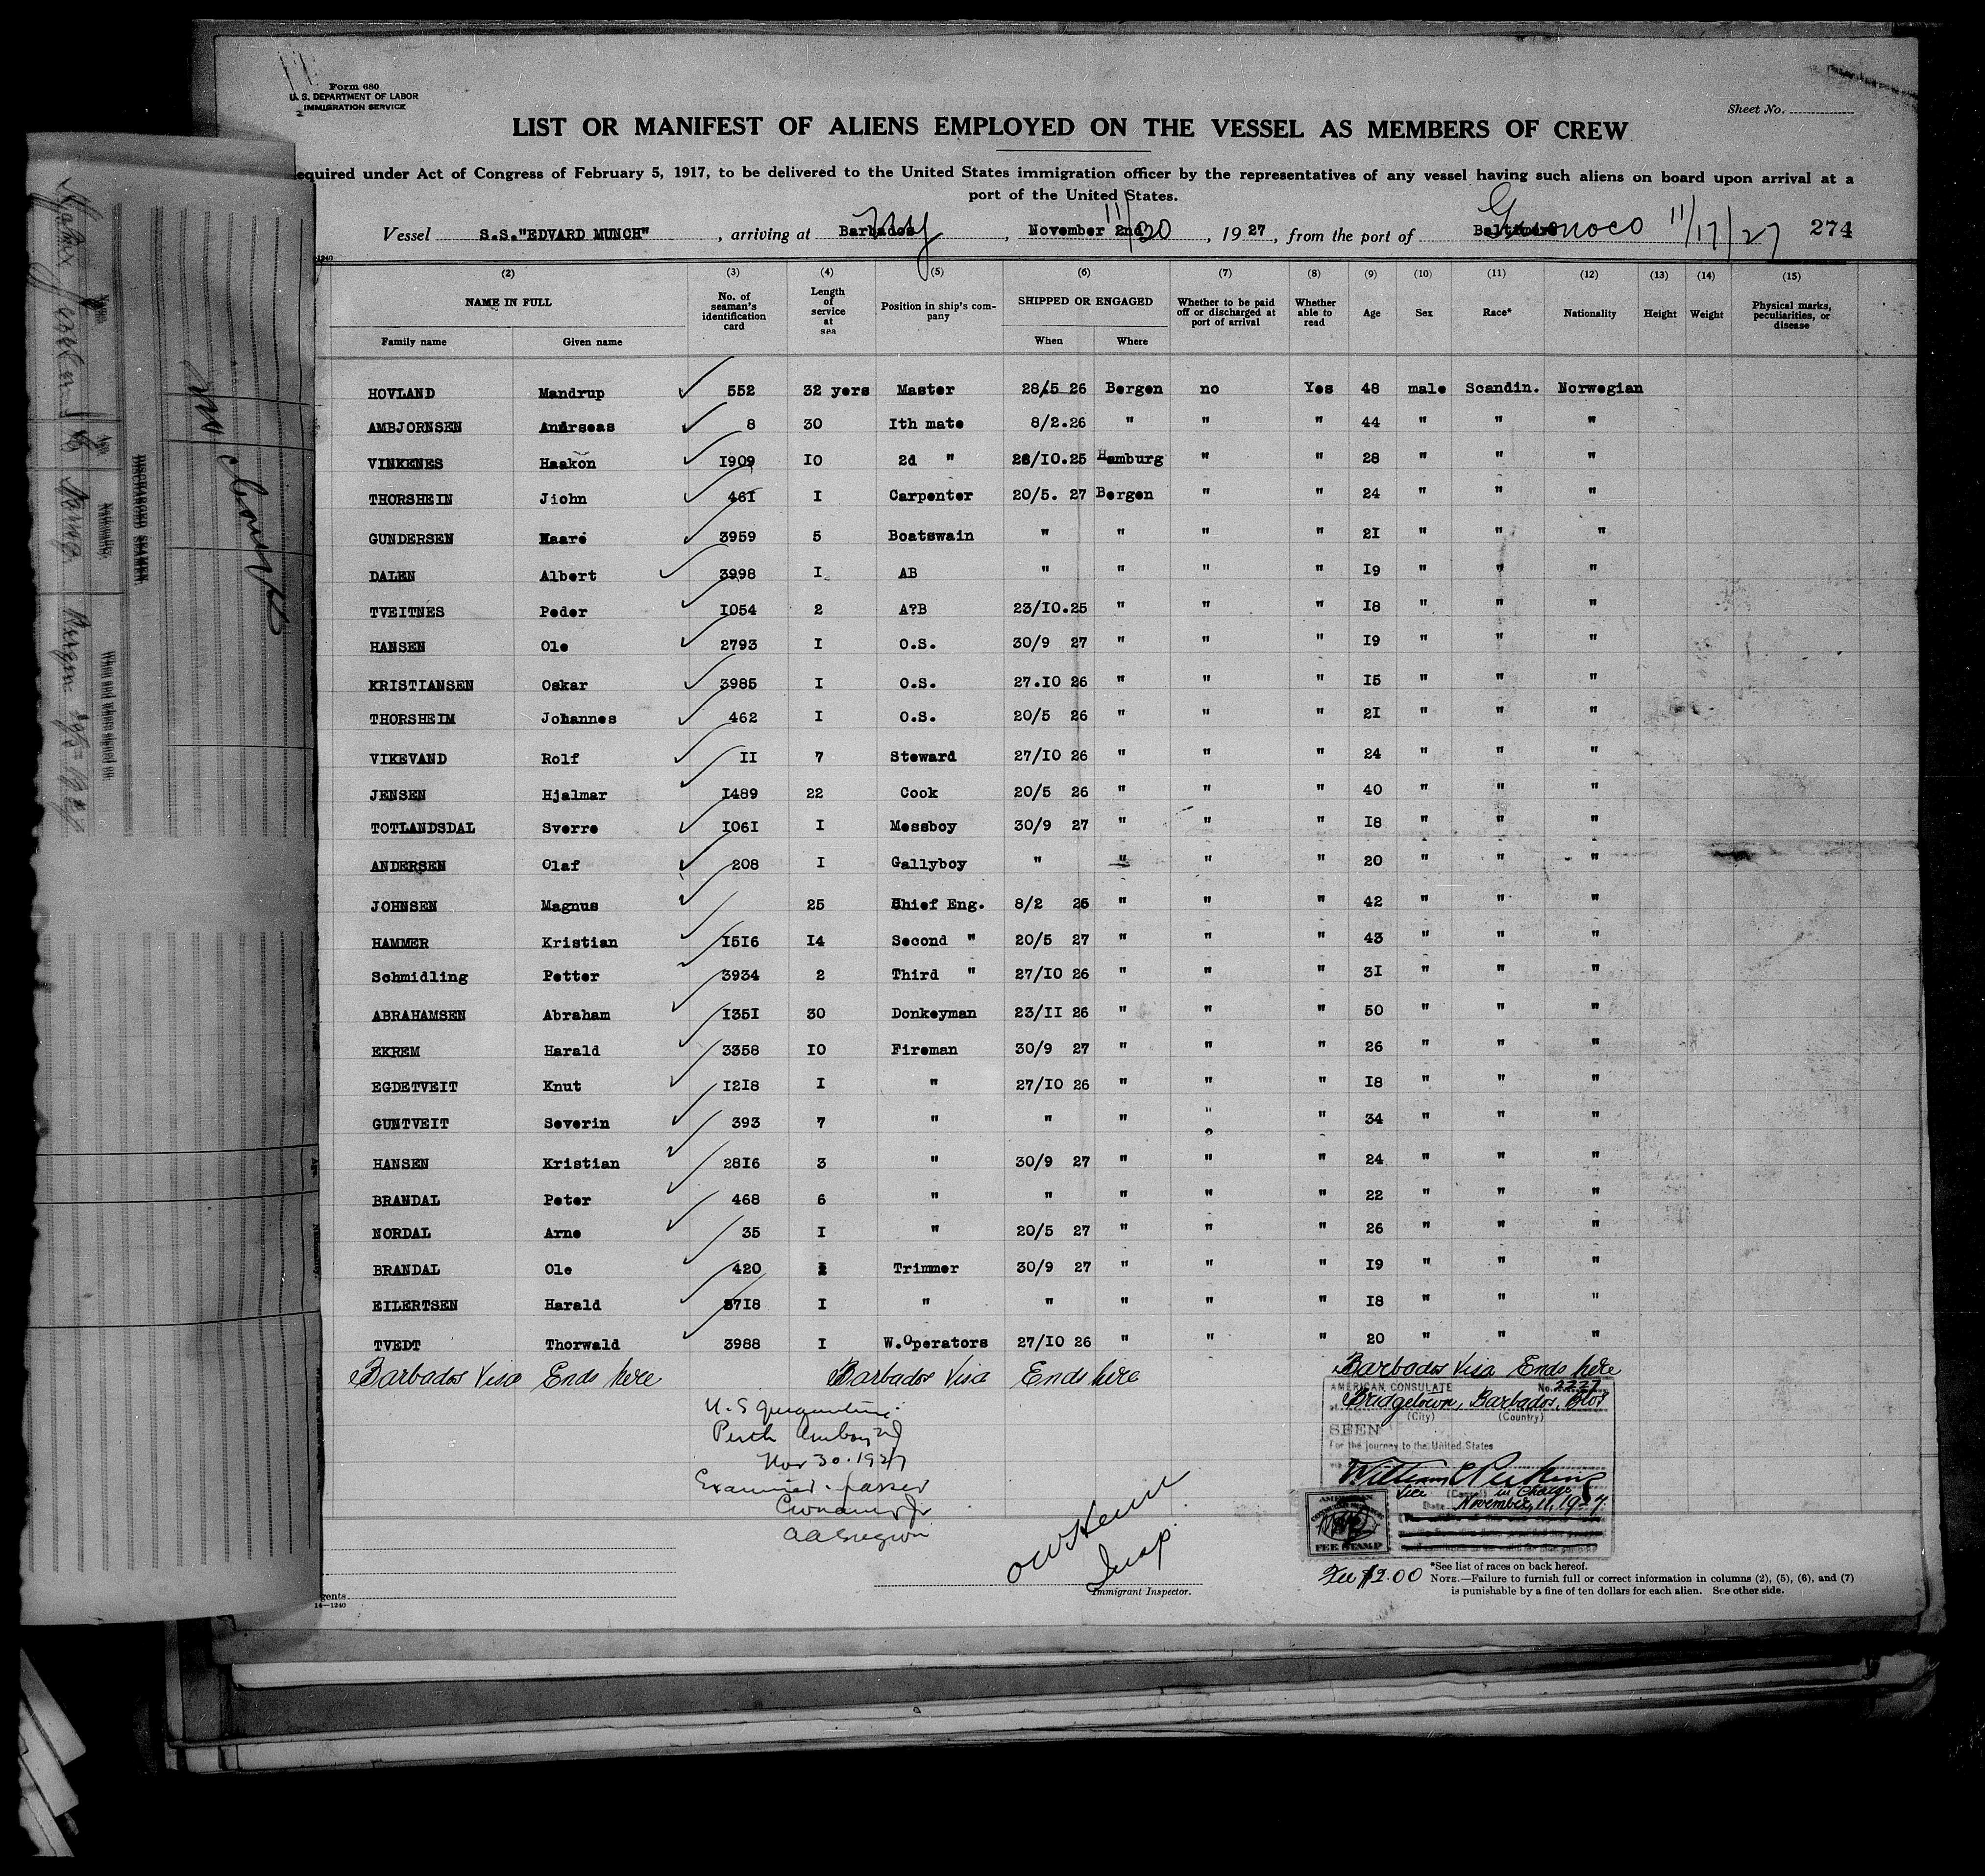 Form 680
U. S. DEPARTMENT OF LABOR
IMMIGRATION SERVICE
Sheet No.
LIST OR MANIFEST OF ALIENS EMPLOYED ON THE VESSEL AS MEMBERS OF CREW
equired under Act of Congress of February 5, 1917, to be delivered to the United States immigration officer by the representatives of any vessel having such aliens on board upon arrival at a
port of the United States.
Vessel S.S."EDVARD MUNCH", arriving at Barbados NY, November 2nd 11/20, 19 27, from the port of Baltimore Guonoco 11/17/27 274
(2) (3) (4) (5) (6) (7) (8) (9) (10) (11) (12) (13) (14) (15)
NAME IN FULL No. of seaman's identification card Length of service at sea Position in ship's company SHIPPED OR ENGAGED Whether to be paid off or discharged at port of arrival Whether able to read Age Sex Race* Nationality Height Weight Physical marks, peculiarities, or disease
Family name Given name When Where
HOVLAND Mandrup 552 32 yers Master 28/5 26 Bergen no Yes 48 male Scandin. Norwegian
AMBJORNSEN Andrseas 8 30 Ith mate 8/2.26 " " " 44 " " "
VINKENES Haakon I909 I0 2d " 28/I0.25 Hamburg " " 28 " " "
THORSHEIN Jiohn 46I I Carpenter 20/5. 27 Bergen " " 24 " " "
GUNDERSEN Haare 3959 5 Boatswain " " " " 2I " " "
DALEN Albert 3998 I AB " " " " I9 " " "
TVEITNES Peder I054 2 A?B 23/I0.25 " " " I8 " " "
HANSEN Ole 2793 I O.S. 30/9 27 " " " I9 " " "
KRISTIANSEN Oskar 3985 I O.S. 27.I0 26 " " " I5 " " "
THORSHEIM Johannes 462 I O.S. 20/5 26 " " " 2I " " "
VIKEVAND Rolf II 7 Steward 27/I0 26 " " " 24 " " "
JENSEN Hjalmar I489 22 Cook 20/5 26 " " " 40 " " "
TOTLANDSDAL Sverre I06I I Messboy 30/9 27 " " " I8 " " "
ANDERSEN Olaf 208 I Gallyboy " " " " 20 " " "
JOHNSEN Magnus 25 Chief Eng. 8/2 26 " " " 42 " " "
HAMMER Kristian I5I6 I4 Second " 20/5 27 " " " 43 " " "
Schmidling Petter 3934 2 Third " 27/I0 26 " " " 3I " " "
ABRAHAMSEN Abraham I35I 30 Donkeyman 23/II 26 " " " 50 " " "
EKREM Harald 3358 I0 Fireman 30/9 27 " " " 26 " " "
EGDETVEIT Knut I2I8 I " 27/I0 26 " " " I8 " " "
GUNTVEIT Severin 393 7 " " " " " 34 " " "
HANSEN Kristian 28I6 3 " 30/9 27 " " " 24 " " "
BRANDAL Peter 468 6 " " " " " 22 " " "
NORDAL Arne 35 I " 20/5 27 " " " 26 " " "
BRANDAL Ole 420 Trimmer 30/9 27 " " " I9 " " "
EILERTSEN Harald 37I8 I " " " " " I8 " " "
TVEDT Thorwald 3988 I W.Operators 27/I0 26 " " " 20 " " "
Barbados Visa Ends here Barbados Visa Ends here Barbados Visa Ends here
U.S Quarantine
Perth Amboy NJ
Nov 30.1927
Examined passed
AMERICAN CONSULATE No. 2227
Bridgetown, Barbados, BWI
(City) (Country)
SEEN
For the journey to the United States
William
Vice (Consul) in charge
Date November 11, 1927
AMERICAN
FEE STAMP
Fee $2.00
Insp.
Immigrant Inspector.
*See list of races on back hereof.
NOTE.—Failure to furnish full or correct information in columns (2), (5), (6), and (7)
is punishable by a fine of ten dollars for each alien. See other side.
gents
14—1240
DISCHARGED SEAMEN
Name Age Nationality When and where signed on
Norweg. Bergen 20/5-1927